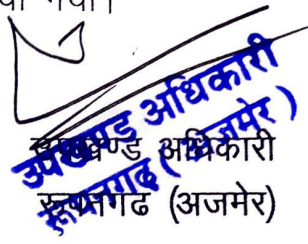 या गया।
उपखण्ड अधिकारी
रूपनगढ़ (अजमेर)
उपखण्ड अधिकारी
रूपनगढ (अजमेर)